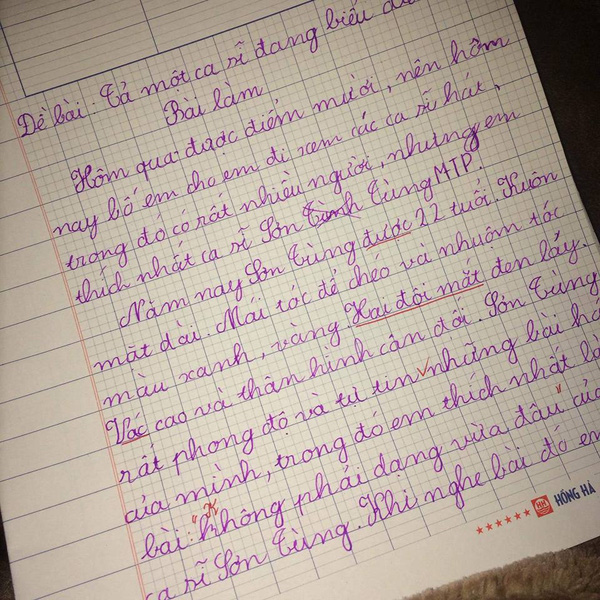 Đề bài: Tả một ca sĩ đang biểu
Bài làm
Hôm qua được điểm mười, nên hôm
nay bố em cho em đi xem các ca sĩ hát,
trong đó có rất nhiều người, nhưng em
thích nhất ca sĩ Sơn Tùng MTP!
Năm nay Sơn Tùng được 22 tuổi. Khuôn
mặt dài. Mái tóc để chéo và nhuộm tóc
màu xanh, vàng. Hai đôi mắt đen láy.
Vác cao và thân hình cân đối. Sơn Tùng
rất phong độ và tự tin những bài há
của mình, trong đó em thích nhất là
bài: "Không phải dạng vừa đâu" của
ca sĩ Sơn Tùng. Khi nghe bài đó em
HH HỒNG HÀ